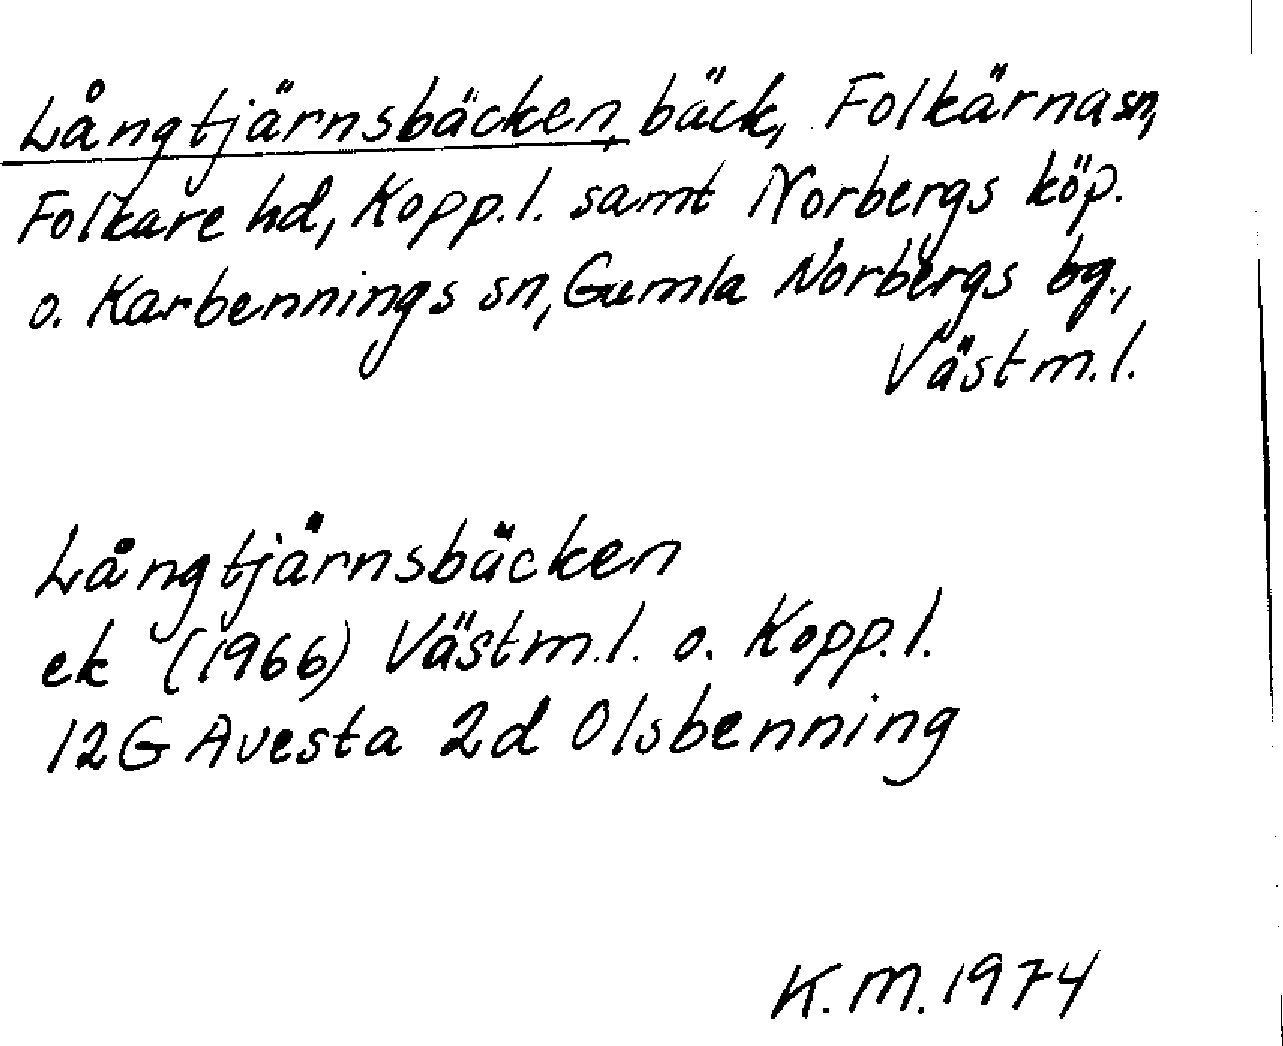 Långtjärnsbäcken, bäck, Folkärna sn,
Folkare hd, Kopp.l. samt Norbergs köp.
o. Karbennings sn, Gamla Norbergs bg.,
Västm.l.
Långtjärnsbäcken
ek (1966) Västm.l. o. Kopp.l.
12G Avesta 2d Olsbenning
K.M. 1974